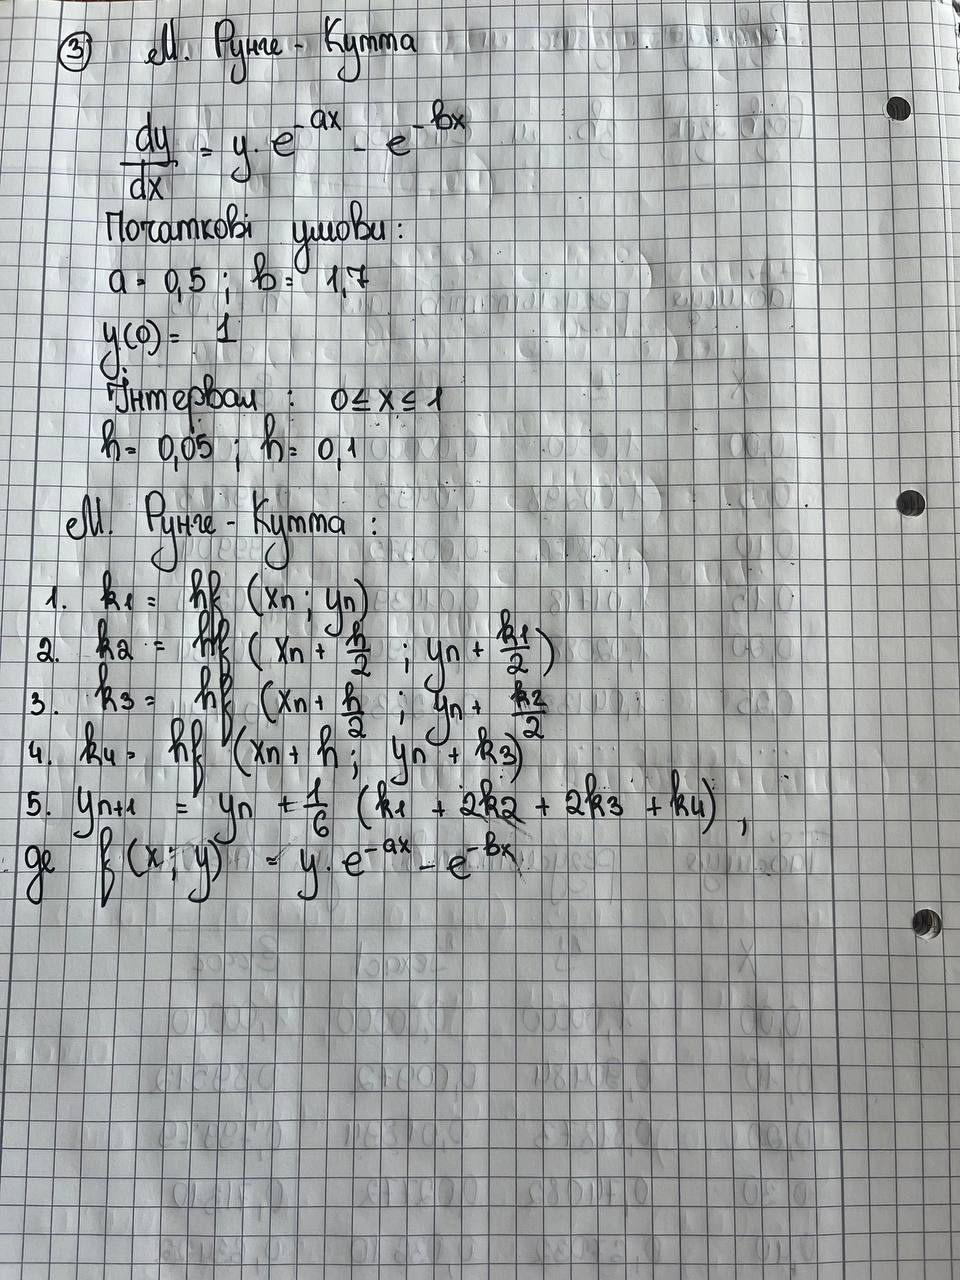 ③ М. Рунге - Кутта
dy/dx = y · e^-ax - e^-bx
Початкові умови:
a = 0,5 ; b = 1,7
y(0) = 1
Інтервал : 0 ≤ x ≤ 1
h = 0,05 ; h = 0,1
М. Рунге - Кутта :
1. k1 = hf (xn ; yn)
2. k2 = hf (xn + h/2 ; yn + k1/2)
3. k3 = hf (xn + h/2 ; yn + k2/2
4. k4 = hf (xn + h ; yn + k3)
5. yn+1 = yn + 1/6 (k1 + 2k2 + 2k3 + k4) ,
де f (x ; y) = y · e^-ax - e^-bx